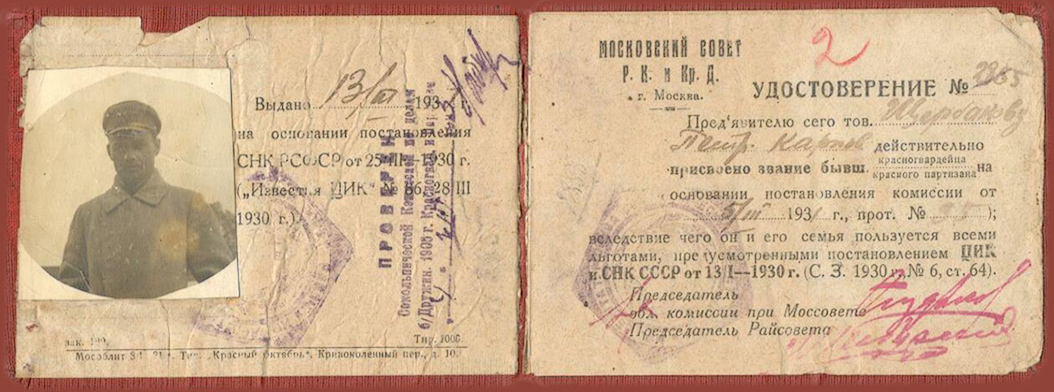 Выдано 13/III 193
на основании постановления
СНК РСФСР от 25-III—1930 г.
(„Известия ЦИК" № 86, 28/III
1930 г.).
ПРОВЕРЕН
Сокольнической Комиссией по делам
б/Дружин. 1905 г. Красногвард. и
зак.
Тир. 1000.
Мособлит
Тип. „Красный Октябрь", Кривоколенный пер., д. 10.
МОСКОВСКИЙ СОВЕТ
Р. К. и Кр. Д.
г. Москва.
2
УДОСТОВЕРЕНИЕ №
Пред'явителю сего тов. Щербакову
Петр. Карпов. действительно
присвоено звание бывш. красногвардейца
красного партизана на
основании постановления комиссии от
5/III 1931 г., прот. № );
вследствие чего он и его семья пользуется всеми
льготами, предусмотренными постановлением ЦИК
и СНК СССР от 13/I—1930 г. (С. З. 1930 г. № 6, ст. 64).
Председатель
обл. комиссии при Моссовете
Председатель Райсовета